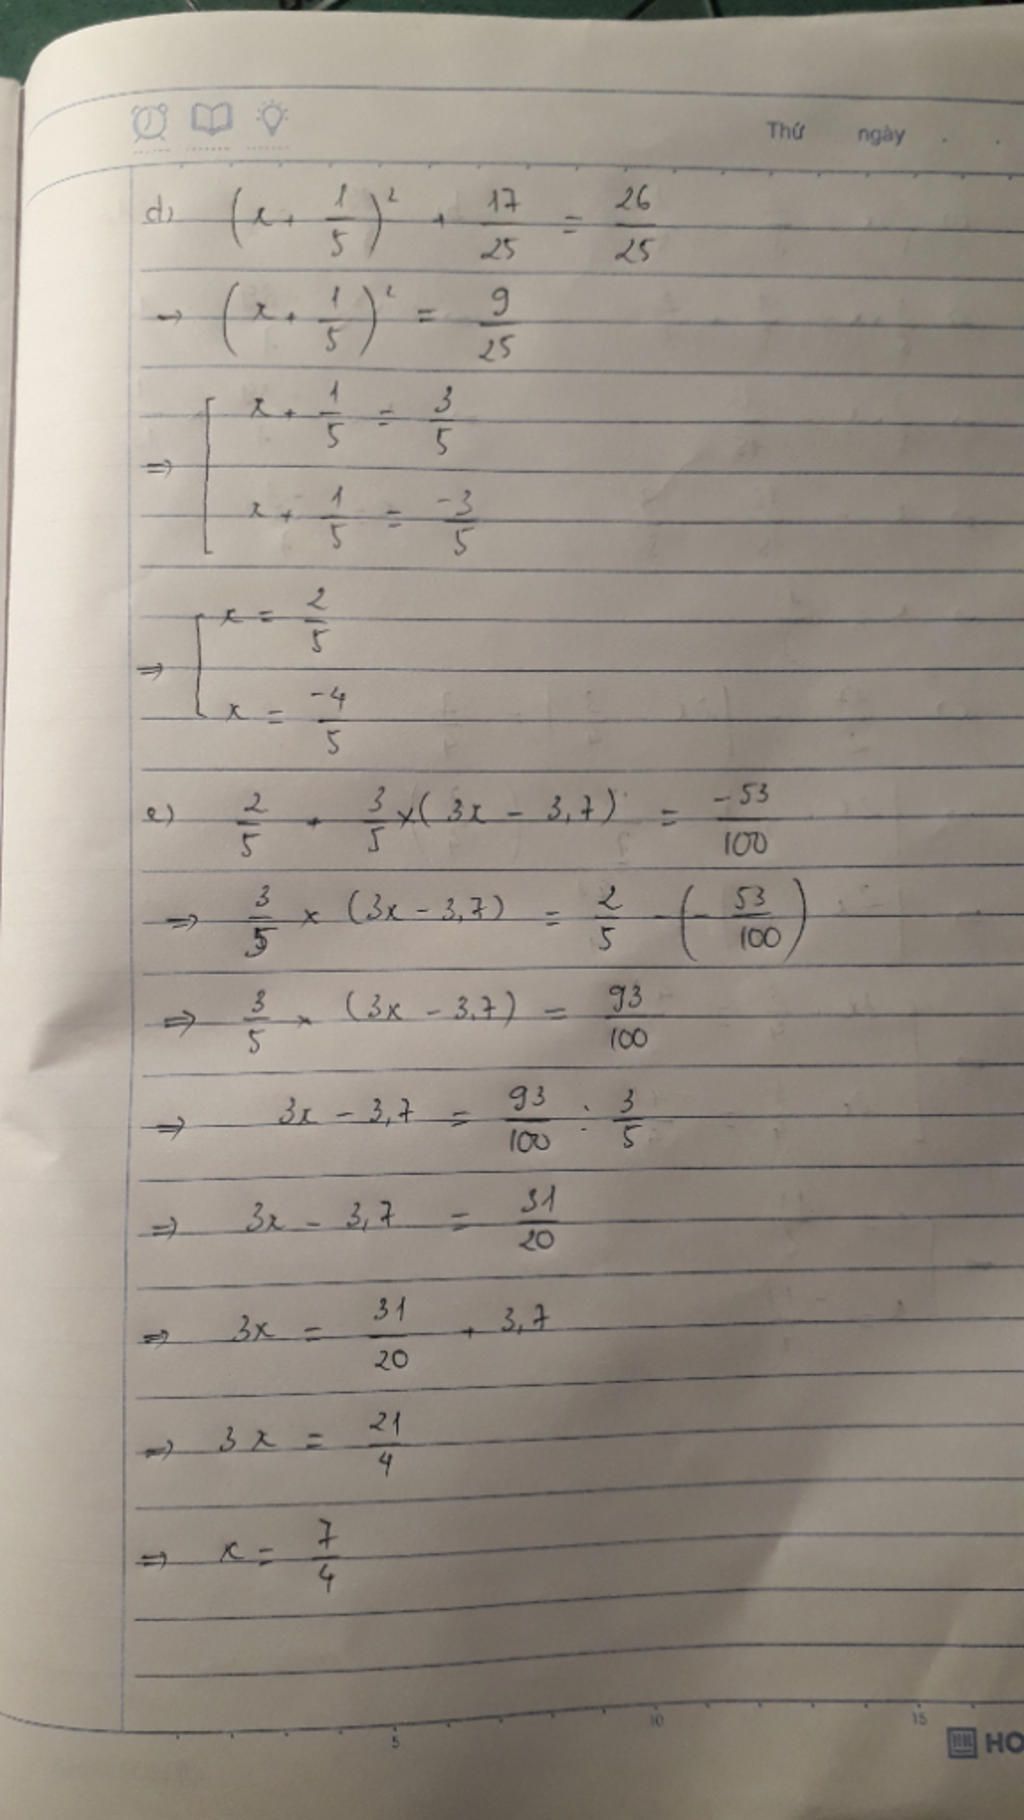 Thứ ngày
d) (x + 1/5)² + 17/25 = 26/25
→ (x + 1/5)² = 9/25
⇒ [ x + 1/5 = 3/5
x + 1/5 = -3/5
⇒ [ x = 2/5
x = -4/5
e) 2/5 + 3/5 × (3x - 3,7) = -53/100
⇒ 3/5 × (3x - 3,7) = 2/5 - (- 53/100)
⇒ 3/5 × (3x - 3,7) = 93/100
⇒ 3x - 3,7 = 93/100 : 3/5
⇒ 3x - 3,7 = 31/20
⇒ 3x = 31/20 + 3,7
⇒ 3x = 21/4
⇒ x = 7/4
5 10 15
HO